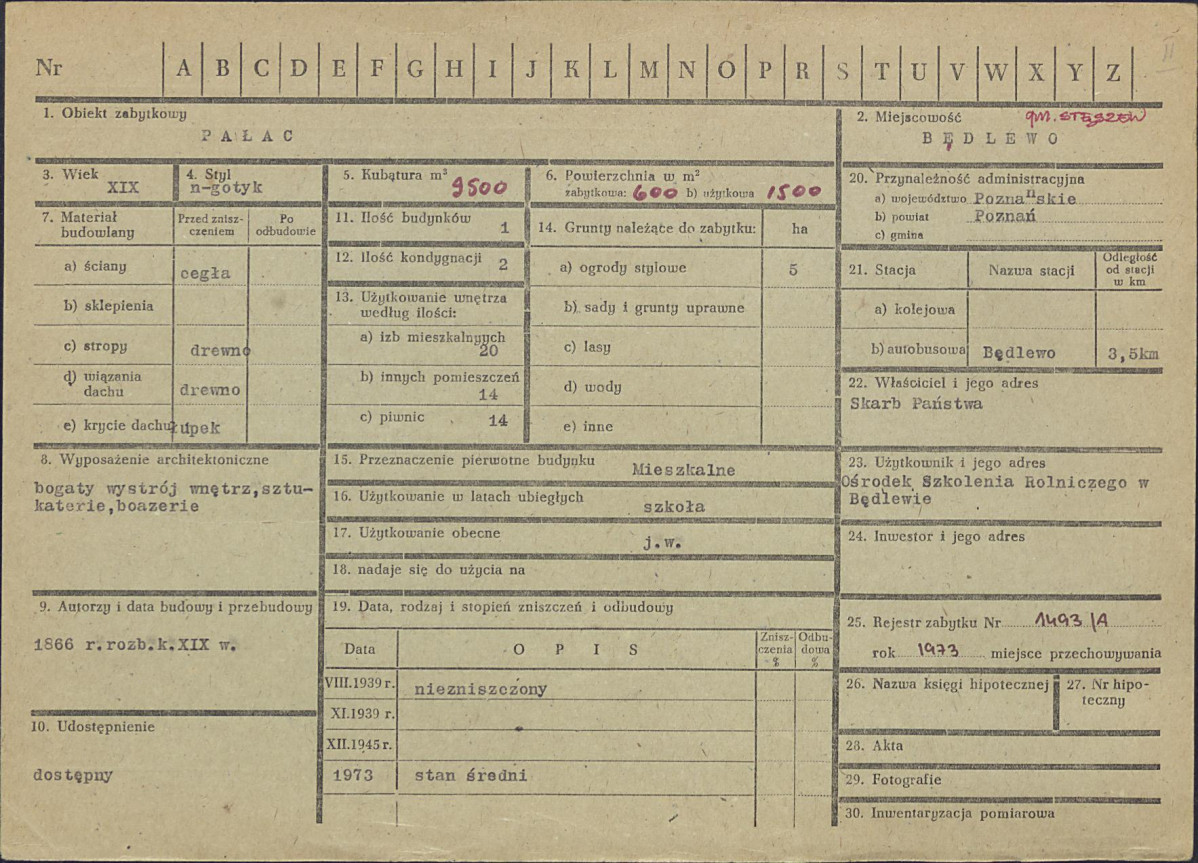 Nr A B C D E F G H I J K L M N O P R S T U V W X Y Z II
1. Obiekt zabytkowy
PAŁAC
2. Miejscowość gm. STĘSZEW
BĘDLEWO
3. Wiek
XIX
4. Styl
n-gotyk
5. Kubatura m³
9500
6. Powierzchnia w m²
zabytkowa: 600 b) użytkowa 1500
7. Materiał budowlany
Przed znisz-
czeniem
Po
odbudowie
a) ściany cegła
b) sklepienia
c) stropy drewno
d) wiązania
dachu drewno
e) krycie dachu łupek
8. Wyposażenie architektoniczne
bogaty wystrój wnętrz,sztu-
katerie,boazerie
9. Autorzy i data budowy i przebudowy
1866 r.rozb.k.XIX w.
10. Udostępnienie
dostępny
11. Ilość budynków
1
12. Ilość kondygnacji 2
13. Użytkowanie wnętrza
według ilości:
a) izb mieszkalnych
20
b) innych pomieszczeń
14
c) piwnic 14
14. Grunty należące do zabytku: ha
a) ogrody stylowe 5
b) sady i grunty uprawne
c) lasy
d) wody
e) inne
15. Przeznaczenie pierwotne budynku Mieszkalne
16. Użytkowanie w latach ubiegłych
szkoła
17. Użytkowanie obecne
j.w.
18. nadaje się do użycia na
19. Data, rodzaj i stopień zniszczeń i odbudowy
Data
OPIS
Znisz-
czenia
%
Odbu-
dowa
%
VIII.1939 r. niezniszczony
XI.1939 r.
XII.1945 r.
1973 stan średni
20. Przynależność administracyjna
a) województwo Poznańskie
b) powiat Poznań
c) gmina
21. Stacja
Nazwa stacji
Odległość
od stacji
w km
a) kolejowa
b) autobusowa Będlewo 3,5km
22. Właściciel i jego adres
Skarb Państwa
23. Użytkownik i jego adres
Ośrodek Szkolenia Rolniczego w
Będlewie
24. Inwestor i jego adres
25. Rejestr zabytku Nr 1493/A
rok 1973 miejsce przechowywania
26. Nazwa księgi hipotecznej
27. Nr hipo-
teczny
28. Akta
29. Fotografie
30. Inwentaryzacja pomiarowa